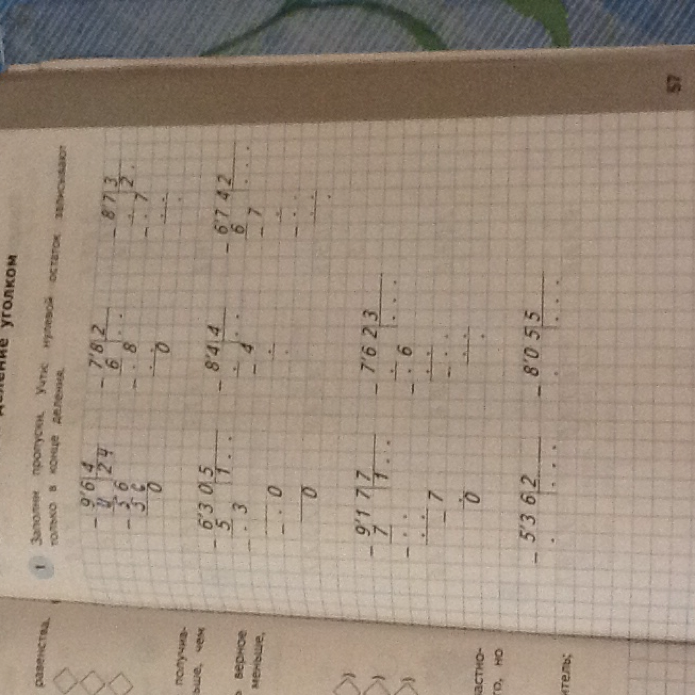 деление уголком
1 Заполни пропуски. Учти: нулевой остаток записывают
только в конце деления.
- 9'6 | 4
4 24
- 36
36
0
- 7'8 | 2
6 . .
- . 8
. .
0
- 8'7 | 3
. 2 .
- . 7
. .
.
- 6'3 0 5 | 5
5 1 . .
- . 3
. .
- . 0
0
- 8'4 | 4
. . .
- 4
.
.
- 6'7 4 2 | 2
6 . . . .
- 7
.
- . .
. .
.
- 9'1 7 7 | 7
7 1 . .
- . .
. .
- 7
.
0
- 7'6 2 3 | 3
. . . .
- . 6
. .
- . .
. .
.
- 5'3 6 2 | 2
. . . . .
- 8'0 5 5 | 5
. . . . .
57
равенства,
получив-
ьше, чем
верное
меньше,
частно-
го, но
тель;